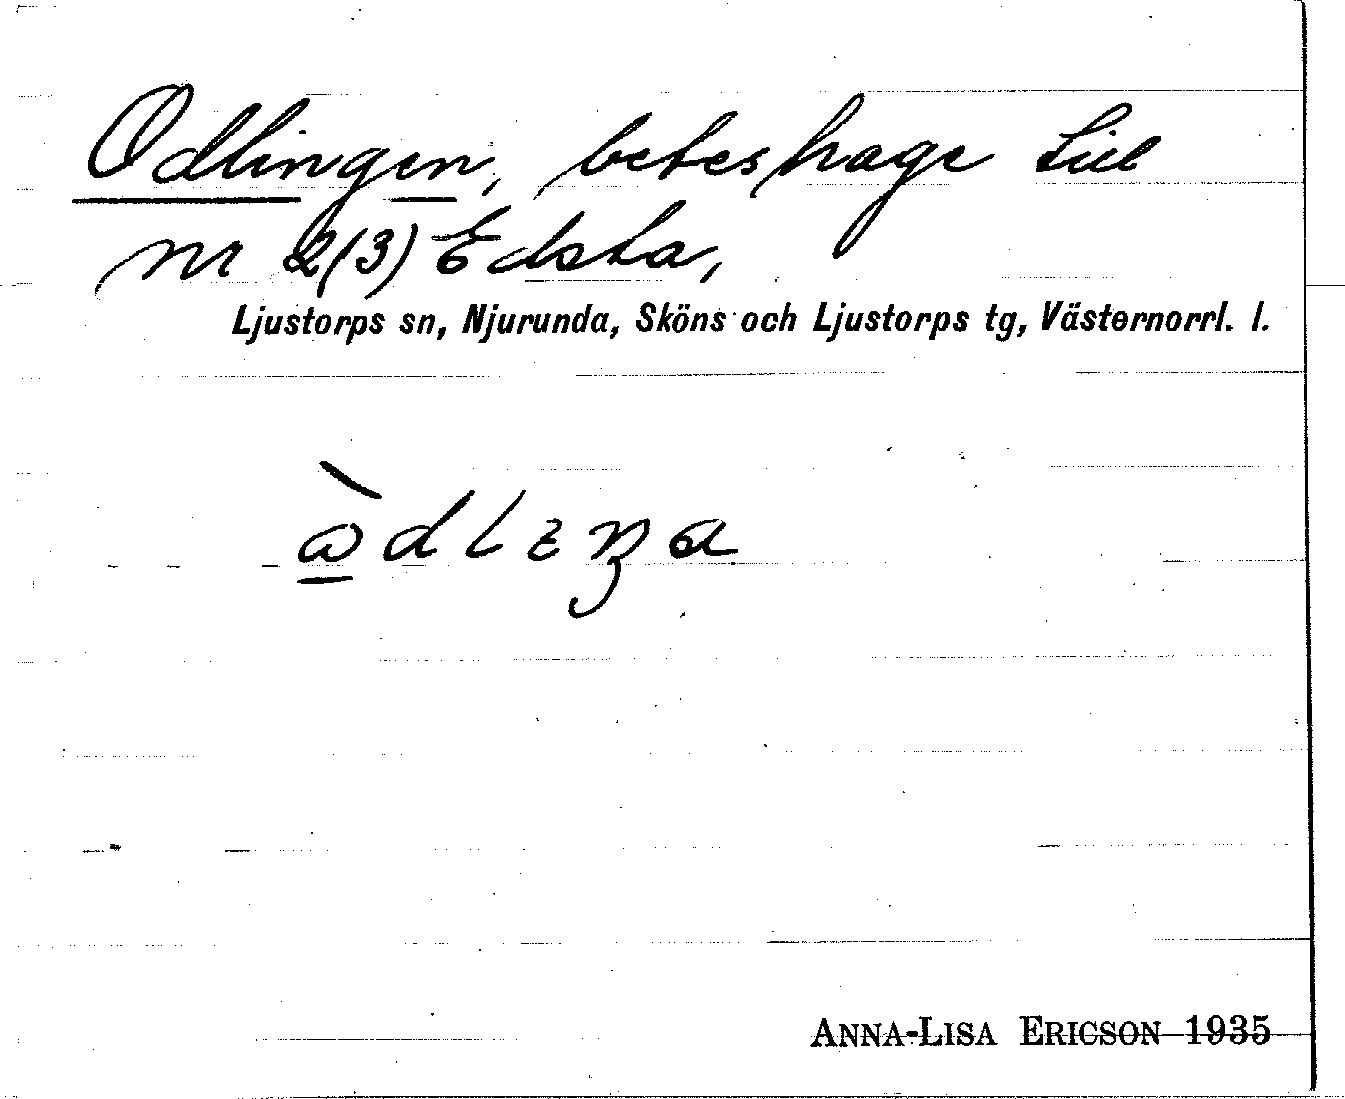 Odlingen, beteshage till
nr 2(3) Edsta,
Ljustorps sn, Njurunda, Sköns och Ljustorps tg, Västernorrl. l.
ANNA-LISA ERICSON 1935